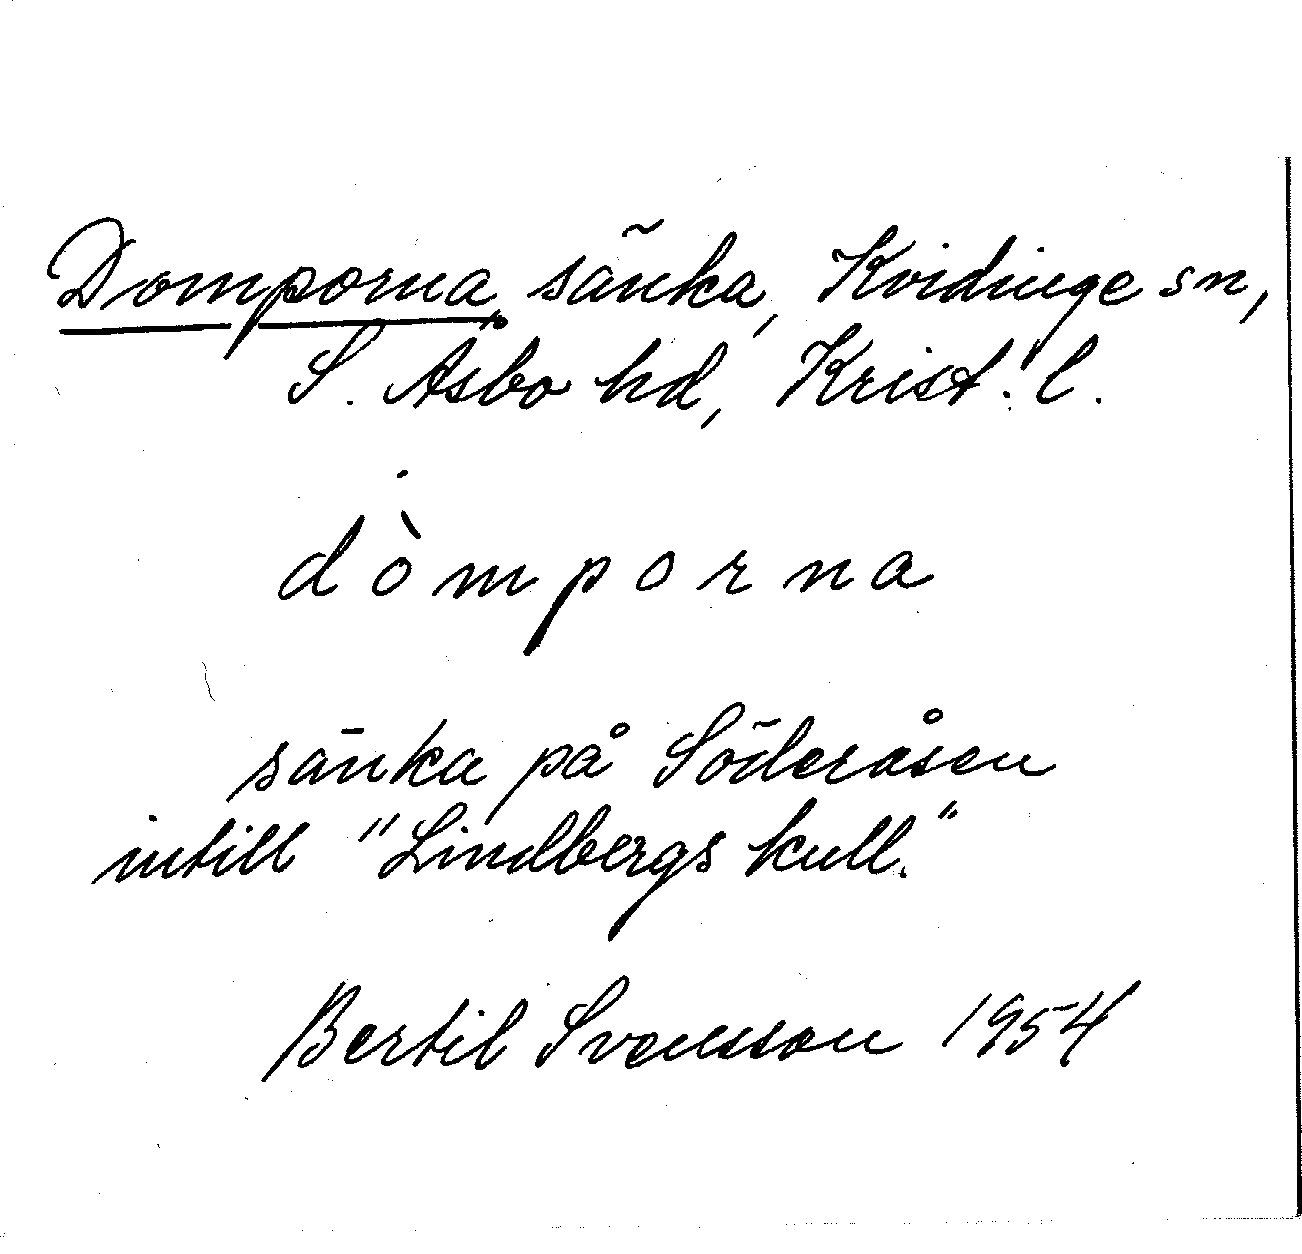 Domporna, sänka, Kvidinge sn,
S. Åsbo hd, Krist. l.
dòmporna
sänka på Söderåsen
intill "Lindbergs kull."
Bertil Svensson 1954